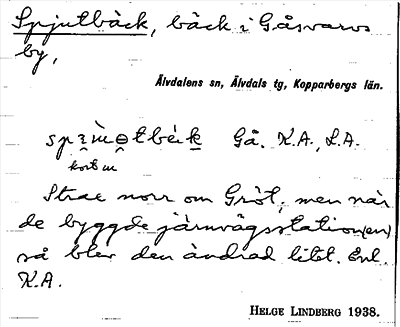 Spjutbäck, bäck i Gåsvarvs
by,
Älvdalens sn, Älvdals tg, Kopparbergs län.
Gå. K.A., L.A.
kort u
Strax norr om Gröt, men när
de byggde järnvägsstation(en)
så blev den ändrad litet. Enl.
K.A.
HELGE LINDBERG 1938.